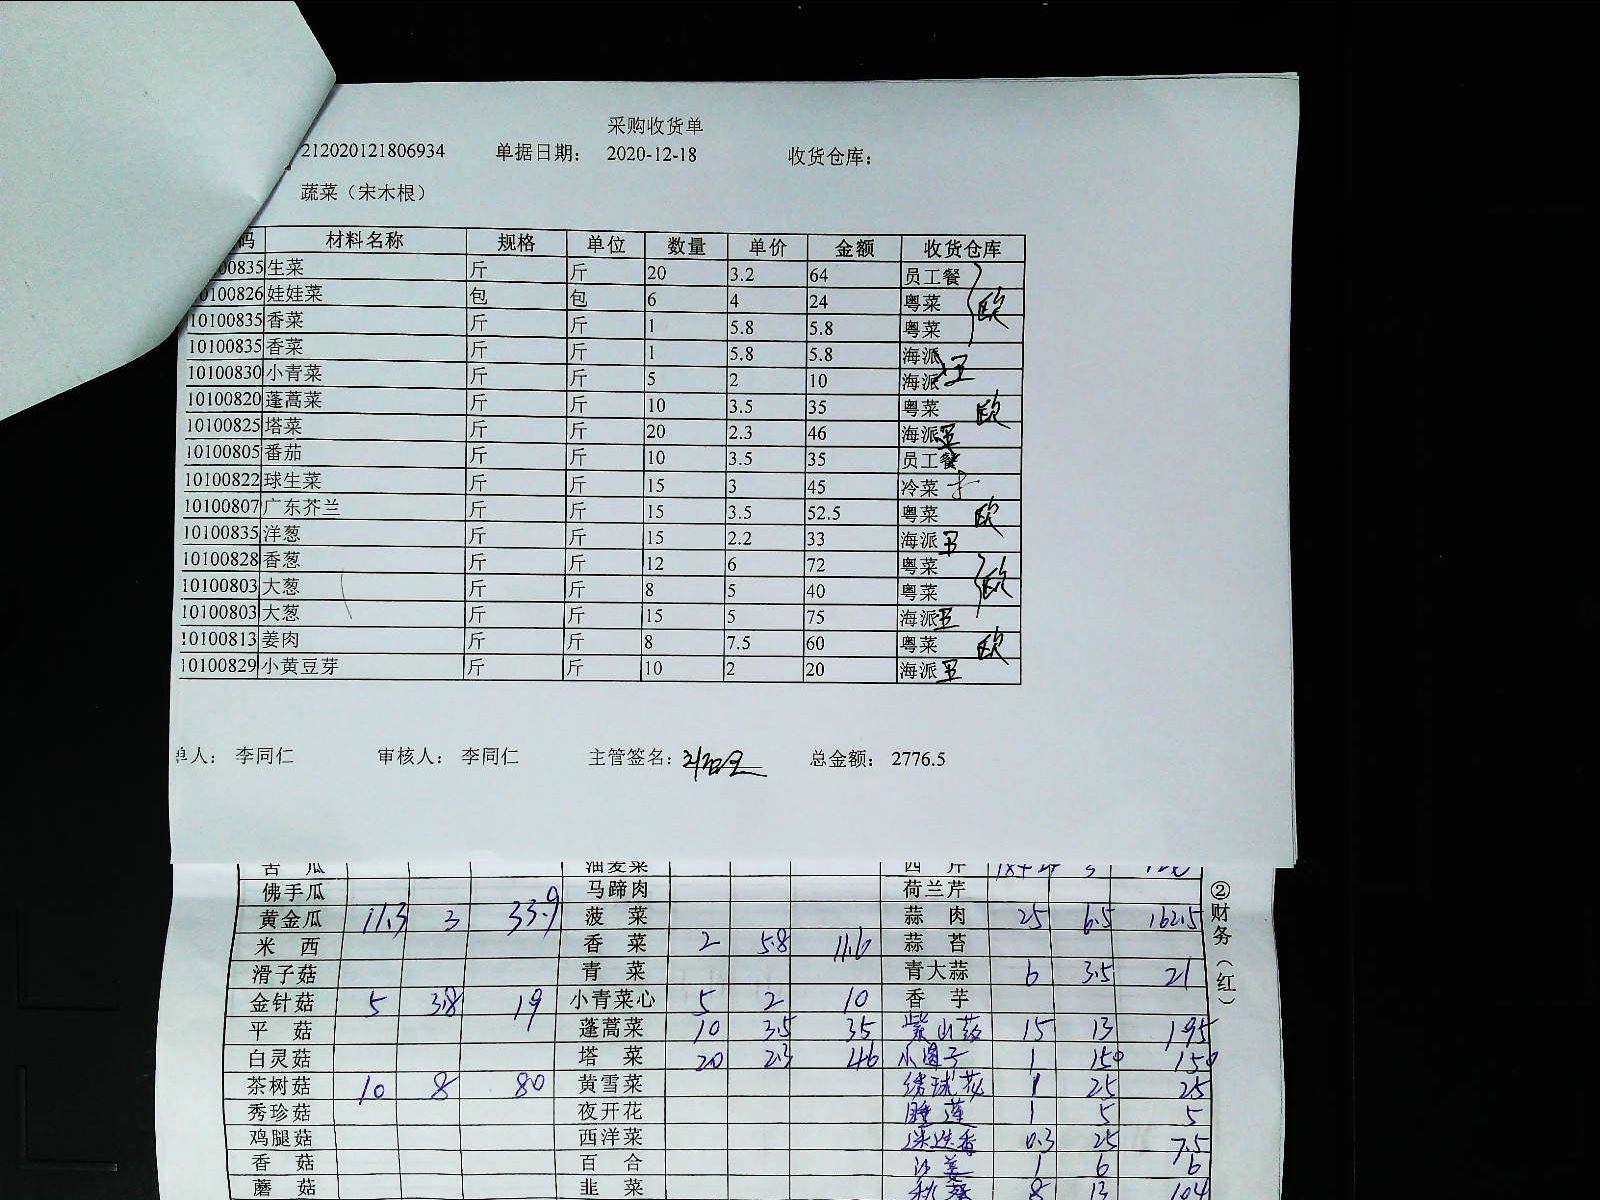 采购收货单
212020121806934 单据日期： 2020-12-18 收货仓库：
蔬菜（宋木根）
码 材料名称 规格 单位 数量 单价 金额 收货仓库
00835 生菜 斤 斤 20 3.2 64 员工餐
0100826 娃娃菜 包 包 6 4 24 粤菜 欧
10100835 香菜 斤 斤 1 5.8 5.8 粤菜
10100835 香菜 斤 斤 1 5.8 5.8 海派
10100830 小青菜 斤 斤 5 2 10 海派
10100820 蓬蒿菜 斤 斤 10 3.5 35 粤菜 欧
10100825 塔菜 斤 斤 20 2.3 46 海派
10100805 番茄 斤 斤 10 3.5 35 员工餐
10100822 球生菜 斤 斤 15 3 45 冷菜
10100807 广东芥兰 斤 斤 15 3.5 52.5 粤菜 欧
10100835 洋葱 斤 斤 15 2.2 33 海派
10100828 香葱 斤 斤 12 6 72 粤菜
10100803 大葱 斤 斤 8 5 40 粤菜 欧
10100803 大葱 斤 斤 15 5 75 海派
10100813 姜肉 斤 斤 8 7.5 60 粤菜 欧
10100829 小黄豆芽 斤 斤 10 2 20 海派
单人： 李同仁 审核人： 李同仁 主管签名： 总金额： 2776.5
苦瓜 油麦菜 西芹
佛手瓜 马蹄肉 荷兰芹
黄金瓜 11.3 3 33.9 菠菜 蒜肉 25 6.5 162.5
米西 香菜 2 5.8 11.6 蒜苔
滑子菇 青菜 青大蒜 6 3.5 21
金针菇 5 3.8 19 小青菜心 5 2 10 香芋
平菇 蓬蒿菜 10 3.5 35 紫山药 15 13 195
白灵菇 塔菜 20 2.3 46 小圆子 1 150 150
茶树菇 10 8 80 黄雪菜 1 25 25
秀珍菇 夜开花 睡莲 1 5 5
鸡腿菇 西洋菜 迷迭香 0.3 25 7.5
香菇 百合 沙姜 1 6 6
蘑菇 韭菜 秋葵 8 13 104
②财务（红）